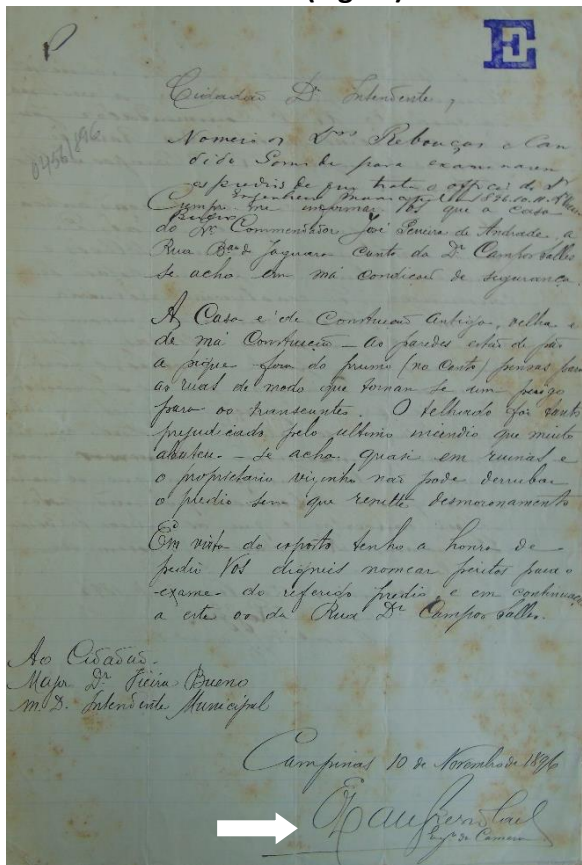 E
Cidadão Dr. Intendente,
0456/896
Nomeio os Drs Rebouças e Can
dido para examinarem
os predios de que trata o officio do Sr
Engenheiro 1896.10.11.
Bueno
Cumpre me informar Vos que a casa
do Sr. Commendador José Pereira de Andrade, a
Rua Bão de Jaguara canto da Dr Campos Salles
se acha em má condição de segurança.
A Casa é de Construcção antiga, velha e
de má Construcção — as paredes estão de páo
a pique fora do prumo (no Canto) para
as ruas de modo que tornam se um perigo
para os transeuntes. O telhado foi tanto
prejudicado pelo ultimo incendio que muito
abateu. — Se acha quasi em ruinas e
o proprietario vizinho não pode derrubar
o predio sem que desmoronamento
Em vista do exposto tenho a honra de
pedir Vos digneis nomear peritos para o
exame do referido predio, e em continuação
a este os da Rua Dr Campos Salles.
Ao Cidadão.
Major Dr. Vieira Bueno
M. D. Intendente Municipal
Campinas 10 de Novembro de 1896
Engº da Camara